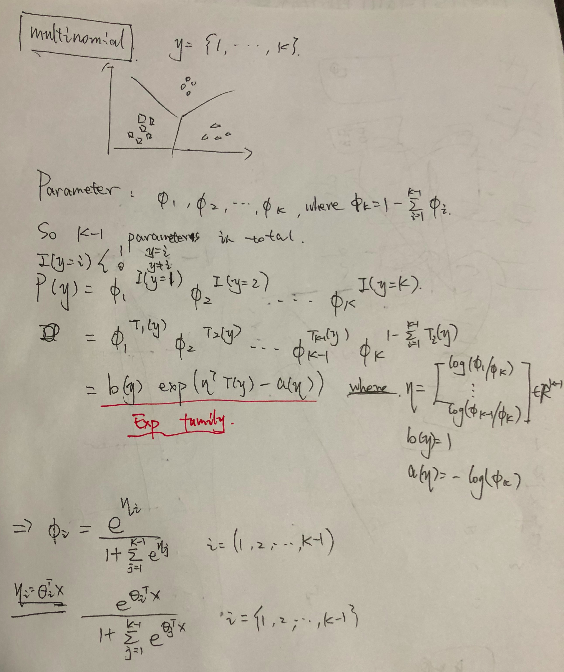 multinomial   y = {1, ⋯, k}.
Parameter: ϕ₁, ϕ₂, ⋯, ϕ_K, where ϕ_K = 1 - Σ_{i=1}^{K-1} ϕ_i.
So K-1 parameters in total.
I(y=i) { 1 y=i
0 y≠i
P(y) = ϕ₁^{I(y=1)} ϕ₂^{I(y=2)} ⋯ ϕ_K^{I(y=K)}.
= ϕ₁^{T₁(y)} ϕ₂^{T₂(y)} ⋯ ϕ_{K-1}^{T_{K-1}(y)} ϕ_K^{1 - Σ_{i=1}^{K-1} T_i(y)}
= b(y) exp(η^T T(y) - a(η)) where. η = [log(ϕ₁/ϕ_K) ⋮ log(ϕ_{K-1}/ϕ_K)] ∈ ℝ^{K-1}
Exp family.
b(y) = 1
a(η) = - log(ϕ_K)
⇒ ϕ_i = e^{η_i} / (1 + Σ_{j=1}^{K-1} e^{η_j}) i = (1, 2, ⋯, K-1)
η_i = θ_i^T x   e^{θ_i^T x} / (1 + Σ_{j=1}^{K-1} e^{θ_j^T x}) i = {1, 2, ⋯, K-1}